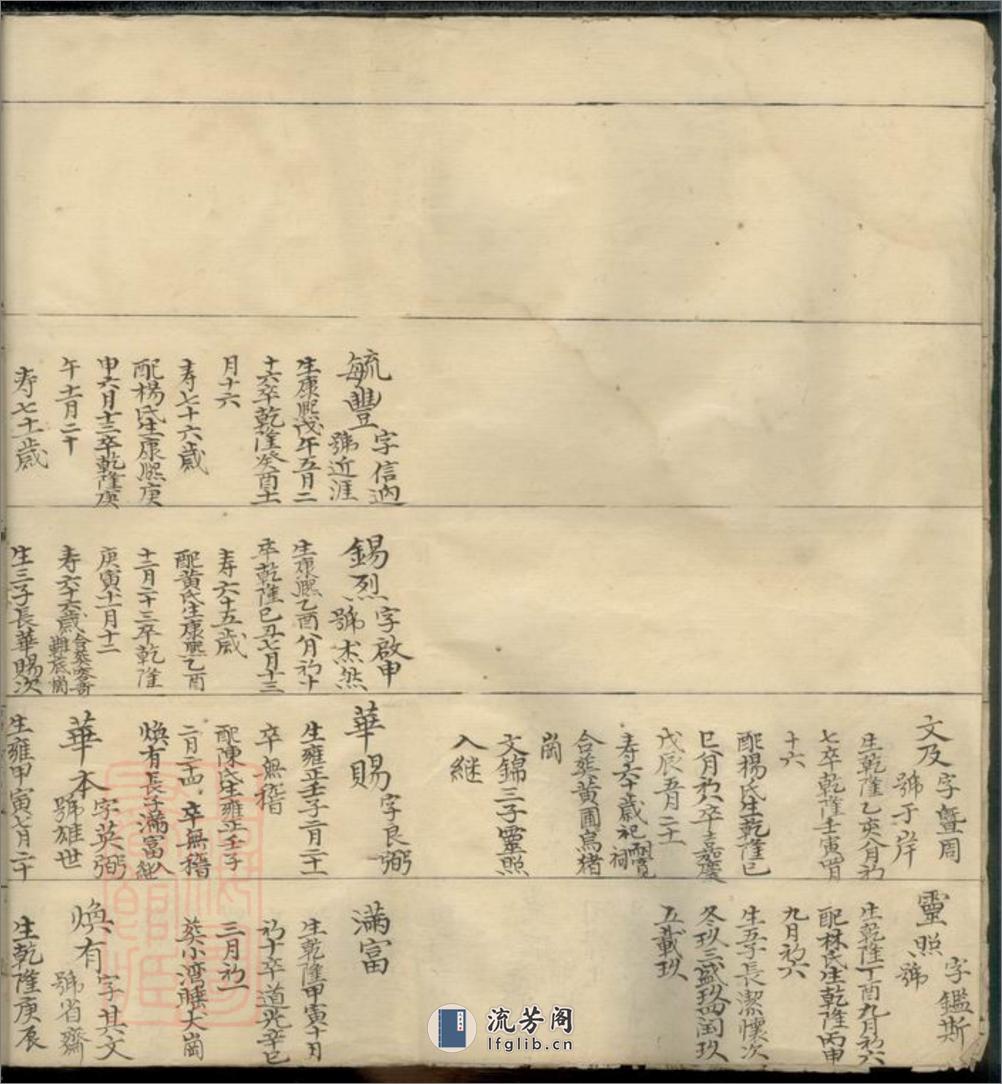 毓豐
字信迥
號近涯
生康熙戊午五月二
十六卒乾隆癸酉十
月十六
寿七十六歲
配楊氏生康熙庚
申六月十三卒乾隆庚
午十一月二十
寿七十一歲
錫烈
字啟申
號杰然
生康熙乙酉八月初十
卒乾隆己丑七月十三
寿六十五歲
配黃氏生康熙乙酉
十二月二十三卒乾隆
庚寅十一月十二
寿六十六歲
生三子長華賜次
文及
字暨周
號于岸
生乾隆乙亥八月初
七卒乾隆壬寅四月
十六
配楊氏生乾隆己
巳六月初六卒嘉慶
戊辰五月二十
寿六十歲祀
祠
合葬黃圃烏猪
崗
文錦三子靈照
入継
華賜
字良弼
生雍正壬子二月二十
卒無稽
配陳氏生雍正壬子
二月二十四卒無稽
煥有長子滿富入
華本
字英弼
號雄世
生雍甲寅七月二十
靈照
字鑑斯
號
生乾隆丁酉九月初六
配林氏生乾隆丙申
九月初六
生五子長潔懷次
冬玖三盛玖四润玖
五載玖
滿富
生乾隆甲寅十月
初十卒道光辛巳
三月初一
葬小湾瞳大崗
煥有
字其文
號省齋
生乾隆庚辰
流芳阁
lfglib.cn